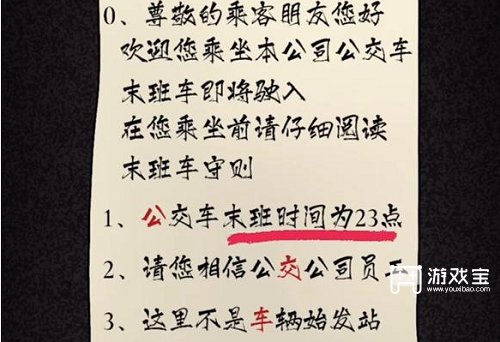 0、尊敬的乘客朋友您好
欢迎您乘坐本公司公交车
末班车即将驶入
在您乘坐前请仔细阅读
末班车守则
1、公交车末班时间为23点
2、请您相信公交公司员
3、这里不是车辆始发站
游戏宝
www.youxibao.com